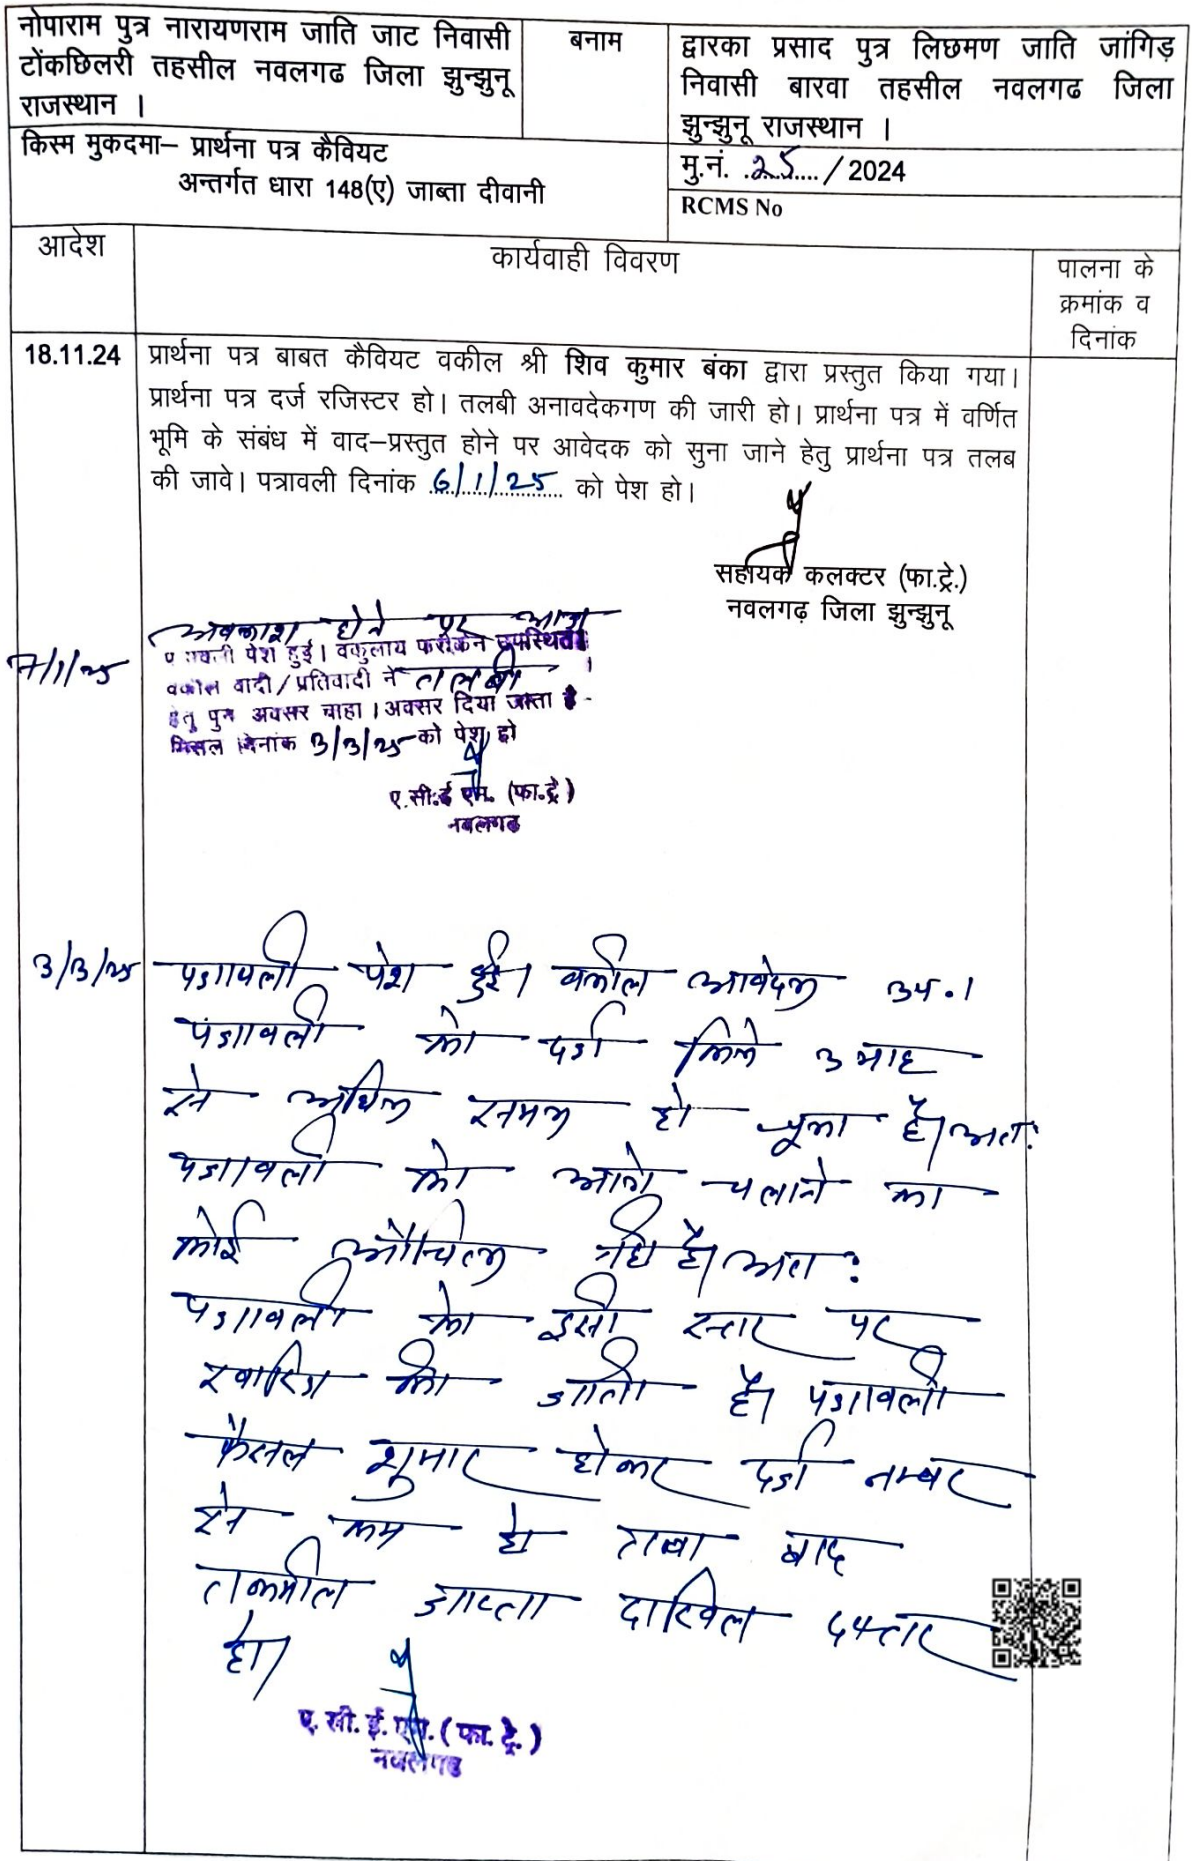 नोपाराम पुत्र नारायणराम जाति जाट निवासी
टोंकछिलरी तहसील नवलगढ जिला झुन्झुनू
राजस्थान ।
बनाम
द्वारका प्रसाद पुत्र लिछमण जाति जांगिड़
निवासी बारवा तहसील नवलगढ जिला
झुन्झुनू राजस्थान ।
किस्म मुकदमा– प्रार्थना पत्र कैवियट
अन्तर्गत धारा 148(ए) जाब्ता दीवानी
मु.नं. .25.... / 2024
RCMS No
आदेश
कार्यवाही विवरण
पालना के
क्रमांक व
दिनांक
18.11.24
प्रार्थना पत्र बाबत कैवियट वकील श्री शिव कुमार बंका द्वारा प्रस्तुत किया गया।
प्रार्थना पत्र दर्ज रजिस्टर हो। तलबी अनावदेकगण की जारी हो। प्रार्थना पत्र में वर्णित
भूमि के संबंध में वाद–प्रस्तुत होने पर आवेदक को सुना जाने हेतु प्रार्थना पत्र तलब
की जावे। पत्रावली दिनांक 6/1/25 को पेश हो।
सहायक कलक्टर (फा.ट्रे.)
नवलगढ़ जिला झुन्झुनू
7/1/25
अवकाश होने पर आज
पत्रावली पेश हुई। वकुलाय फरीकेन उपस्थित।
वकील वादी/प्रतिवादी ने तलबी
हेतु पुन अवसर चाहा। अवसर दिया जाता है
मिसल दिनांक 3/3/25 को पेश हो
ए.सी.ई एम. (फा.ट्रे)
नवलगढ
3/3/25
पत्रावली पेश हुई। वकील आवेदक उप.।
पत्रावली को दर्ज किये 3 माह
से अधिक समय हो चूका है। अतः
पत्रावली को आगे चलाने का
कोई औचित्य नहि है। अतः
पत्रावली को इसी स्तर पर
खारिज की जाती है। पत्रावली
फैसल शुमार होकर दर्ज नम्बर
से कम हो तथा बाद
तकमील जाप्ता दाखिल दफ्तर
हो।
ए. सी. ई. एम. (फा. ट्रे.)
नवलगढ